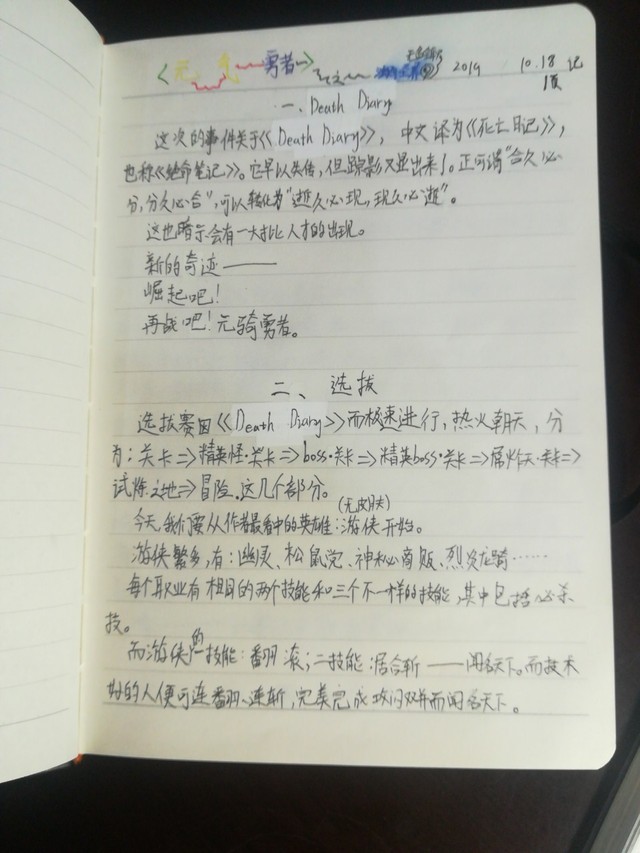 <元气——勇者~> 之 2019 10.18 记
1页
一、Death Diary
这次的事件关于《Death Diary》，中文译为《死亡日记》，
也称《绝命笔记》。它早以失传，但踪影又显出来了。正可谓“合久必
分，分久必合”，可以转化为“逝久必现，现久必逝”。
这也暗示会有一大批人才的出现。
新的奇迹——
崛起吧！
再战吧！元骑勇者。
二、选拔
选拔赛因《Death Diary》而极速进行，热火朝天，分
为：关卡=>精英怪·关卡=>boss·关卡=>精英boss·关卡=>屠炸天·关卡=>
试炼之地=>冒险。这几个部分。
今天，我们要从作者最看中的英雄：游侠(无皮肤)开始。
游侠繁多，有：幽灵、松鼠党、神秘商贩、烈炎龙骑……
每个职业有相同的两个技能和三个不一样的技能，其中包括必杀
技。
而游侠的技能：翻滚；二技能：居合斩——闻名天下。而技术
好的人便可连翻、连斩，完美完成攻闪双并而闻名天下。